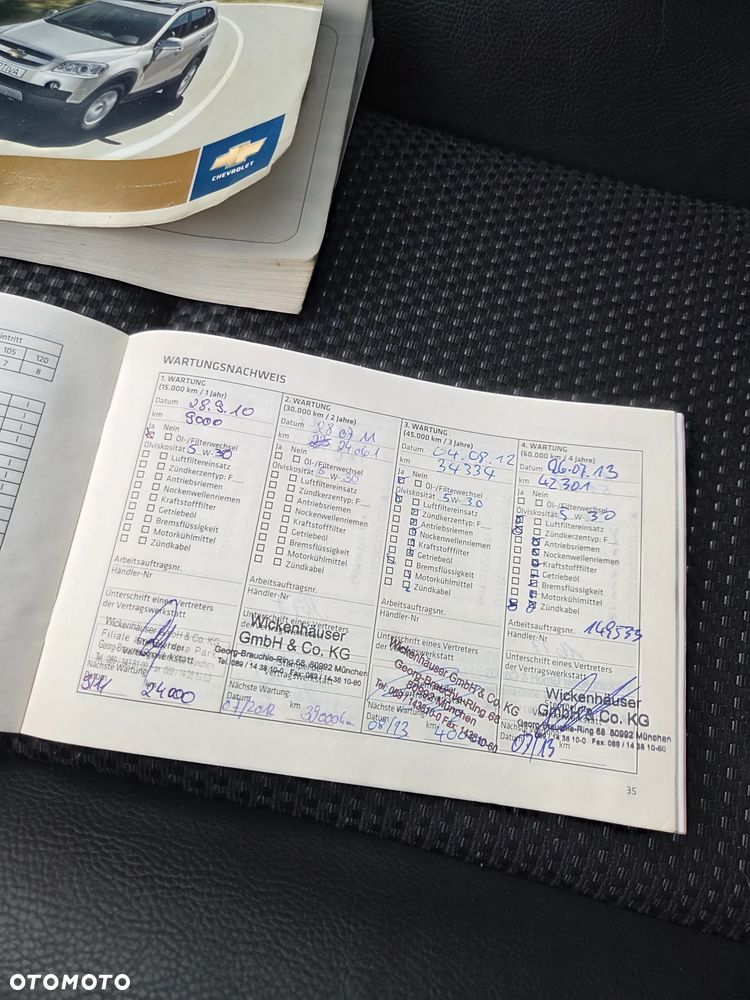 PTIVA
CHEVROLET
intritt
105 120
7 8
WARTUNGSNACHWEIS
1. WARTUNG
(15.000 km / 1 Jahr)
Datum 28.9.10
km 9000
Ja Nein
Öl-/Filterwechsel
Ölviskosität 5 W-30
Luftfiltereinsatz
Zündkerzentyp: F
Antriebsriemen
Nockenwellenriemen
Kraftstofffilter
Getriebeöl
Bremsflüssigkeit
Motorkühlmittel
Zündkabel
Arbeitsauftragsnr.
Händler-Nr
Unterschrift eines Vertreters
der Vertragswerkstatt
Wickenhäuser GmbH & Co. KG
Filiale
Stempel der
Vertragswerkstatt
Nächste Wartung:
24000
2. WARTUNG
(30.000 km / 2 Jahre)
Datum 28.07.11
km 24061
Ja Nein
Öl-/Filterwechsel
Ölviskosität 5 W-30
Luftfiltereinsatz
Zündkerzentyp: F
Antriebsriemen
Nockenwellenriemen
Kraftstofffilter
Getriebeöl
Bremsflüssigkeit
Motorkühlmittel
Zündkabel
Arbeitsauftragsnr.
Händler-Nr
Unterschrift eines Vertreters
Wickenhäuser
GmbH & Co. KG
Georg-Brauchle-Ring 68 80992 München
Tel. 089 / 14 38 10-0 Fax 089 / 14 38 10-60
Vertragswerkstatt
Nächste Wartung:
Datum km
07/2012 39000 km
3. WARTUNG
(45.000 km / 3 Jahre)
Datum 04.08.12
km 34334
Ja Nein
Öl-/Filterwechsel
Ölviskosität 5 W-30
Luftfiltereinsatz
Zündkerzentyp: F
Antriebsriemen
Nockenwellenriemen
Kraftstofffilter
Getriebeöl
Bremsflüssigkeit
Motorkühlmittel
Zündkabel
Arbeitsauftragsnr.
Händler-Nr
Unterschrift eines Vertreters
Wickenhäuser GmbH & Co. KG
Georg-Brauchle-Ring 68
80992 München
Tel. 089/143810-0 Fax 143810-60
Nächste Wartung:
Datum km
08/13
4. WARTUNG
(60.000 km / 4 Jahre)
Datum 06.07.13
km 42301
Ja Nein
Öl-/Filterwechsel
Ölviskosität 5 W-30
Luftfiltereinsatz
Zündkerzentyp: F
Antriebsriemen
Nockenwellenriemen
Kraftstofffilter
Getriebeöl
Bremsflüssigkeit
Motorkühlmittel
Zündkabel
Arbeitsauftragsnr. 149533
Händler-Nr
Unterschrift eines Vertreters
der Vertragswerkstatt
Wickenhäuser
GmbH & Co. KG
Georg-Brauchle-Ring 68 80992 München
Tel. 089 / 14 38 10-0 Fax 089 / 14 38 10-60
Nächste Wartung:
Datum km
07/13
35
OTOMOTO